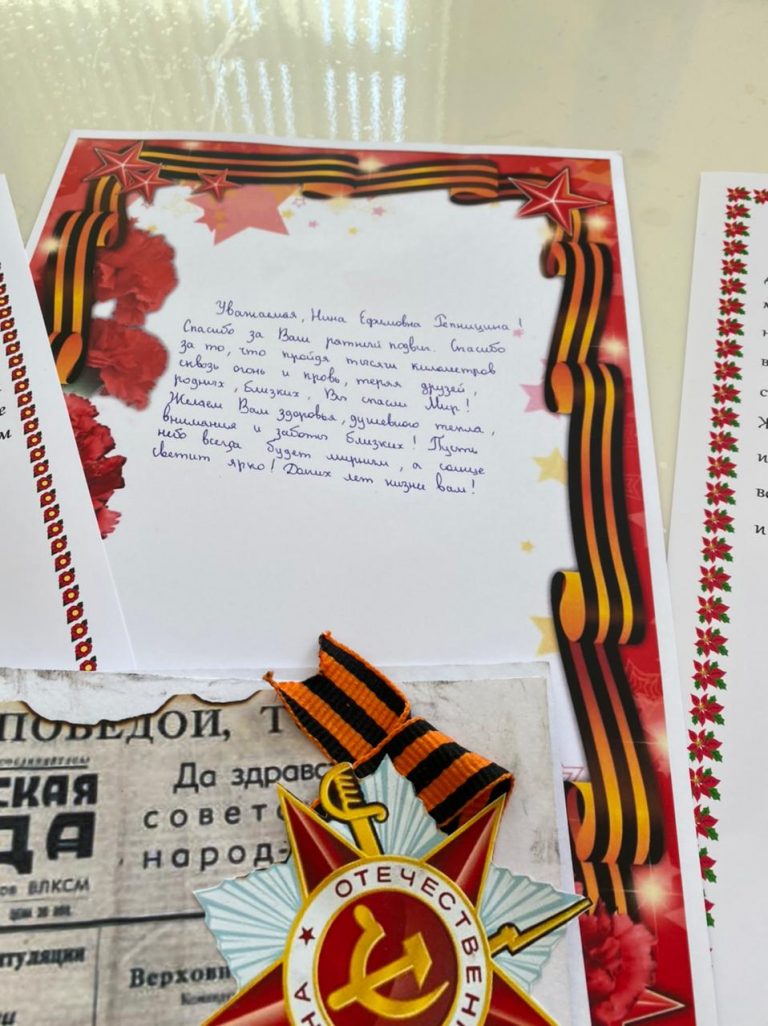 Уважаемая, Нина Ефимовна Репницина!
Спасибо за Ваш ратный подвиг. Спасибо
за то, что пройдя тысячи километров
сквозь огонь и кровь, теряя друзей,
родных, близких, Вы спасли Мир!
Желаем Вам здоровья, душевного тепла,
внимания и заботы близких! Пусть
небо всегда будет мирным, а солнце
светит ярко! Долгих лет жизни вам!
ПОБЕДОЙ, Т
СКАЯ
ДА
ов ВЛКСМ
Да здравс
советс
народ
туляции
Верховн
ОТЕЧЕСТВЕН
НА